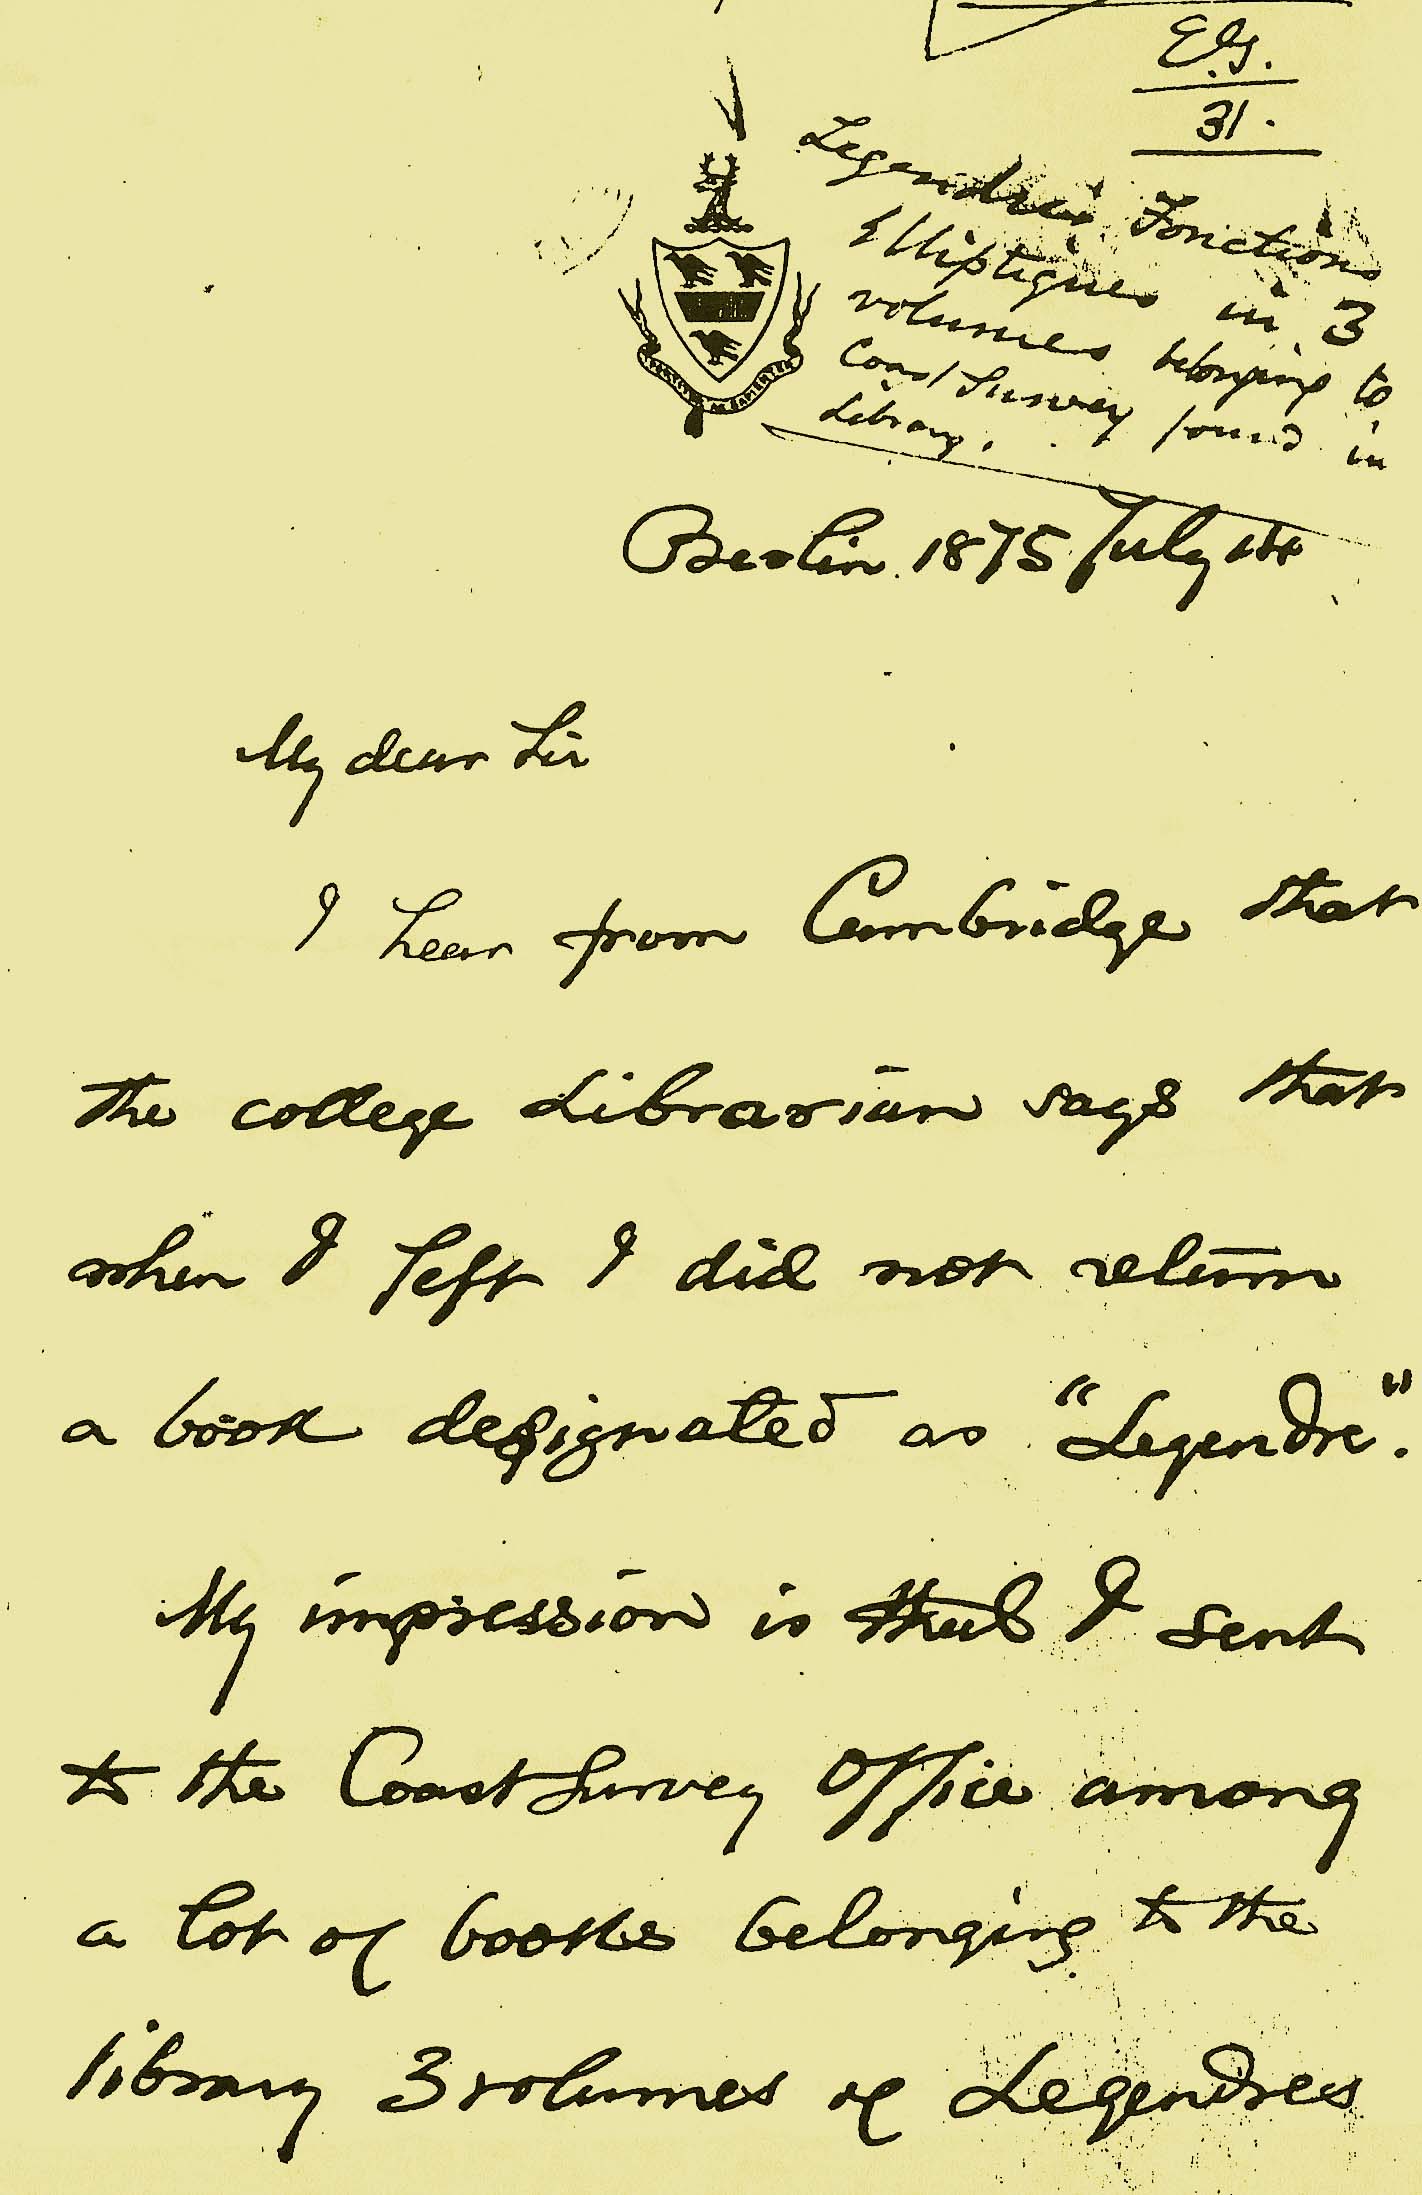 E.G.
31.
Legendre's Fonctions
Elliptiques in 3
volumes belonging to
Coast Survey found in
Library.
Berlin. 1875 July
My dear Sir
I hear from Cambridge that
the college Librarian says that
when I left I did not return
a book designated as "Legendre".
My impression is that I sent
to the Coast Survey Office among
a lot of books belonging to the
library 3 volumes of Legendres